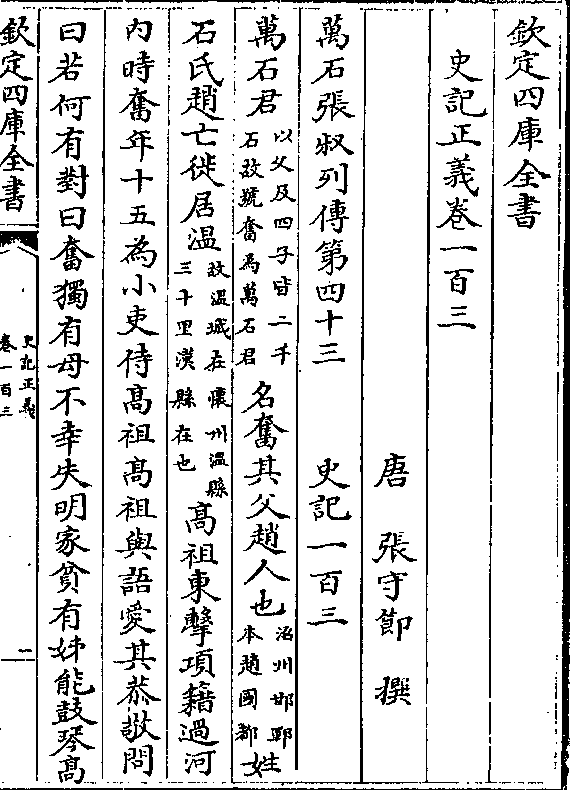 欽定四庫全書
史記正義卷一百三
唐 張守節 撰
萬石張叔列傳第四十三 史記一百三
萬石君以父及四子皆二千石故號奮爲萬石君名奮其父趙人也洺州邯鄲本趙國都姓
石氏趙亡徙居温故温城在懷州温縣三十里漢縣在也髙祖東擊項籍過河
内時奮年十五為小吏侍髙祖髙祖與語愛其恭敬問
曰若何有對曰奮獨有母不幸失明家貧有姊能鼓琴髙
欽定四庫全書
史記正義
卷一百三
一